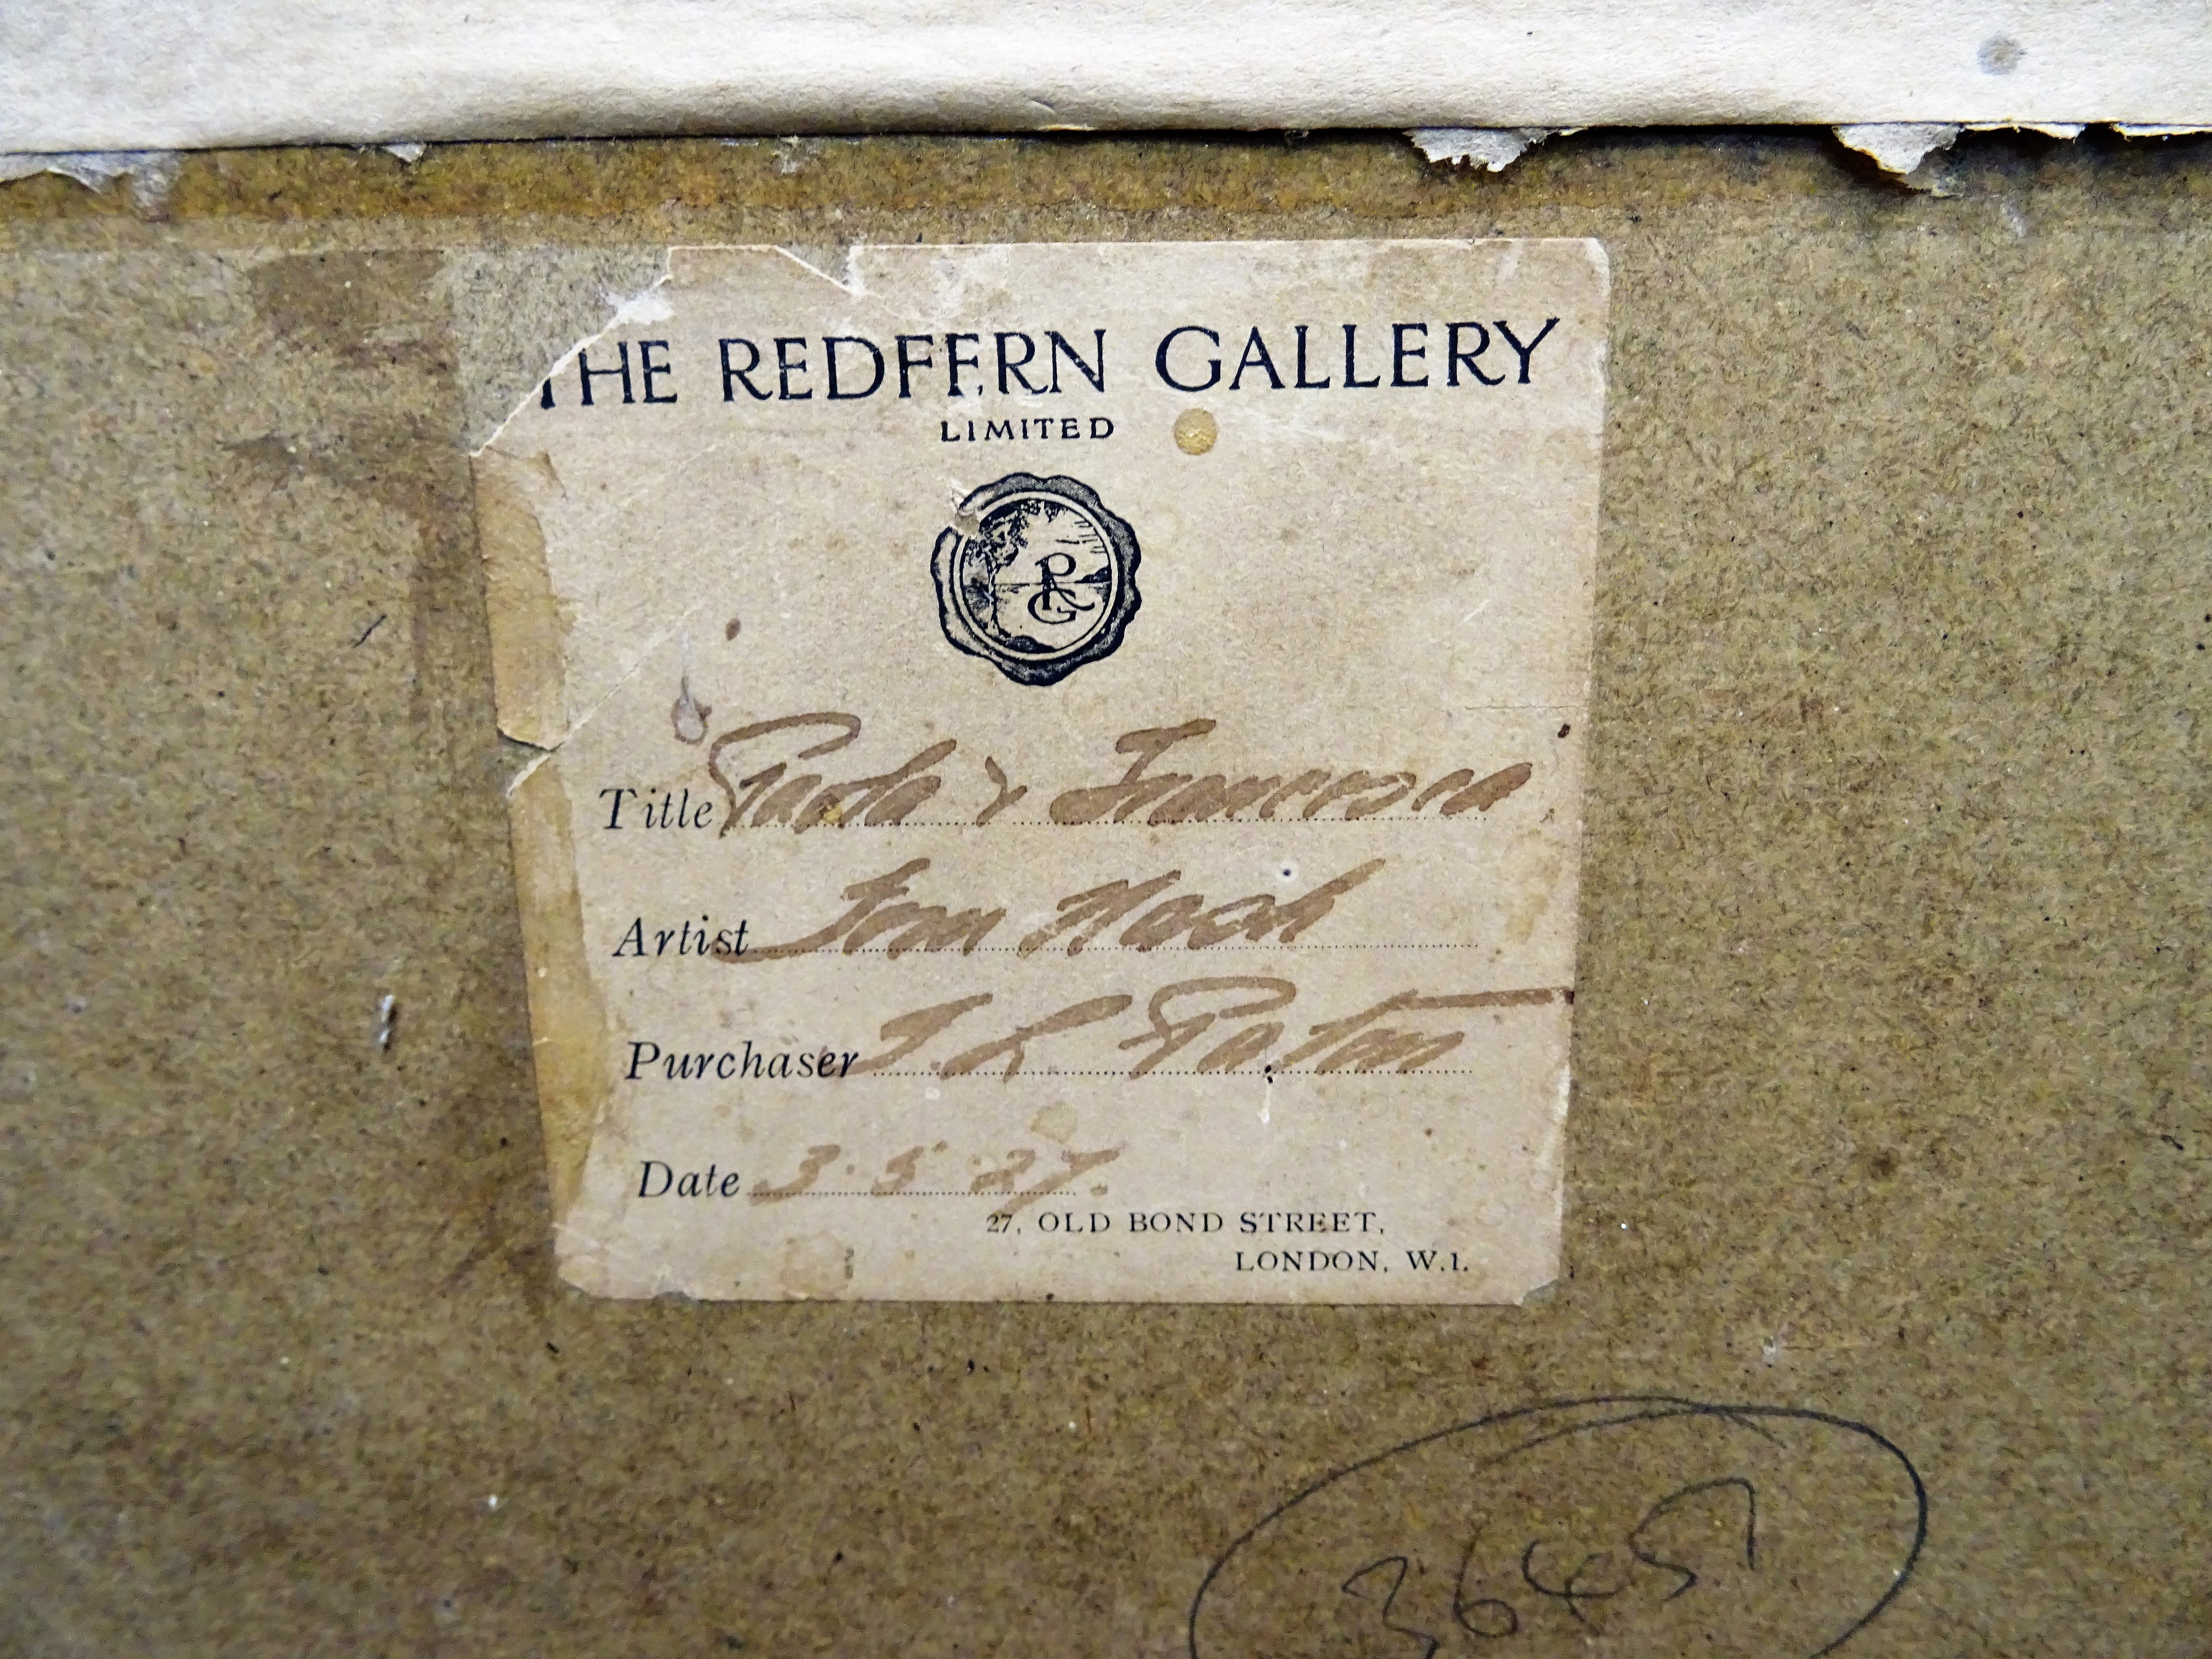 THE REDFERN GALLERY
LIMITED
RG
Title Paolo & Francesca
Artist Tom Nash
Purchaser J. L. Paton
Date 3.5.27.
27, OLD BOND STREET,
LONDON, W.1.
3645